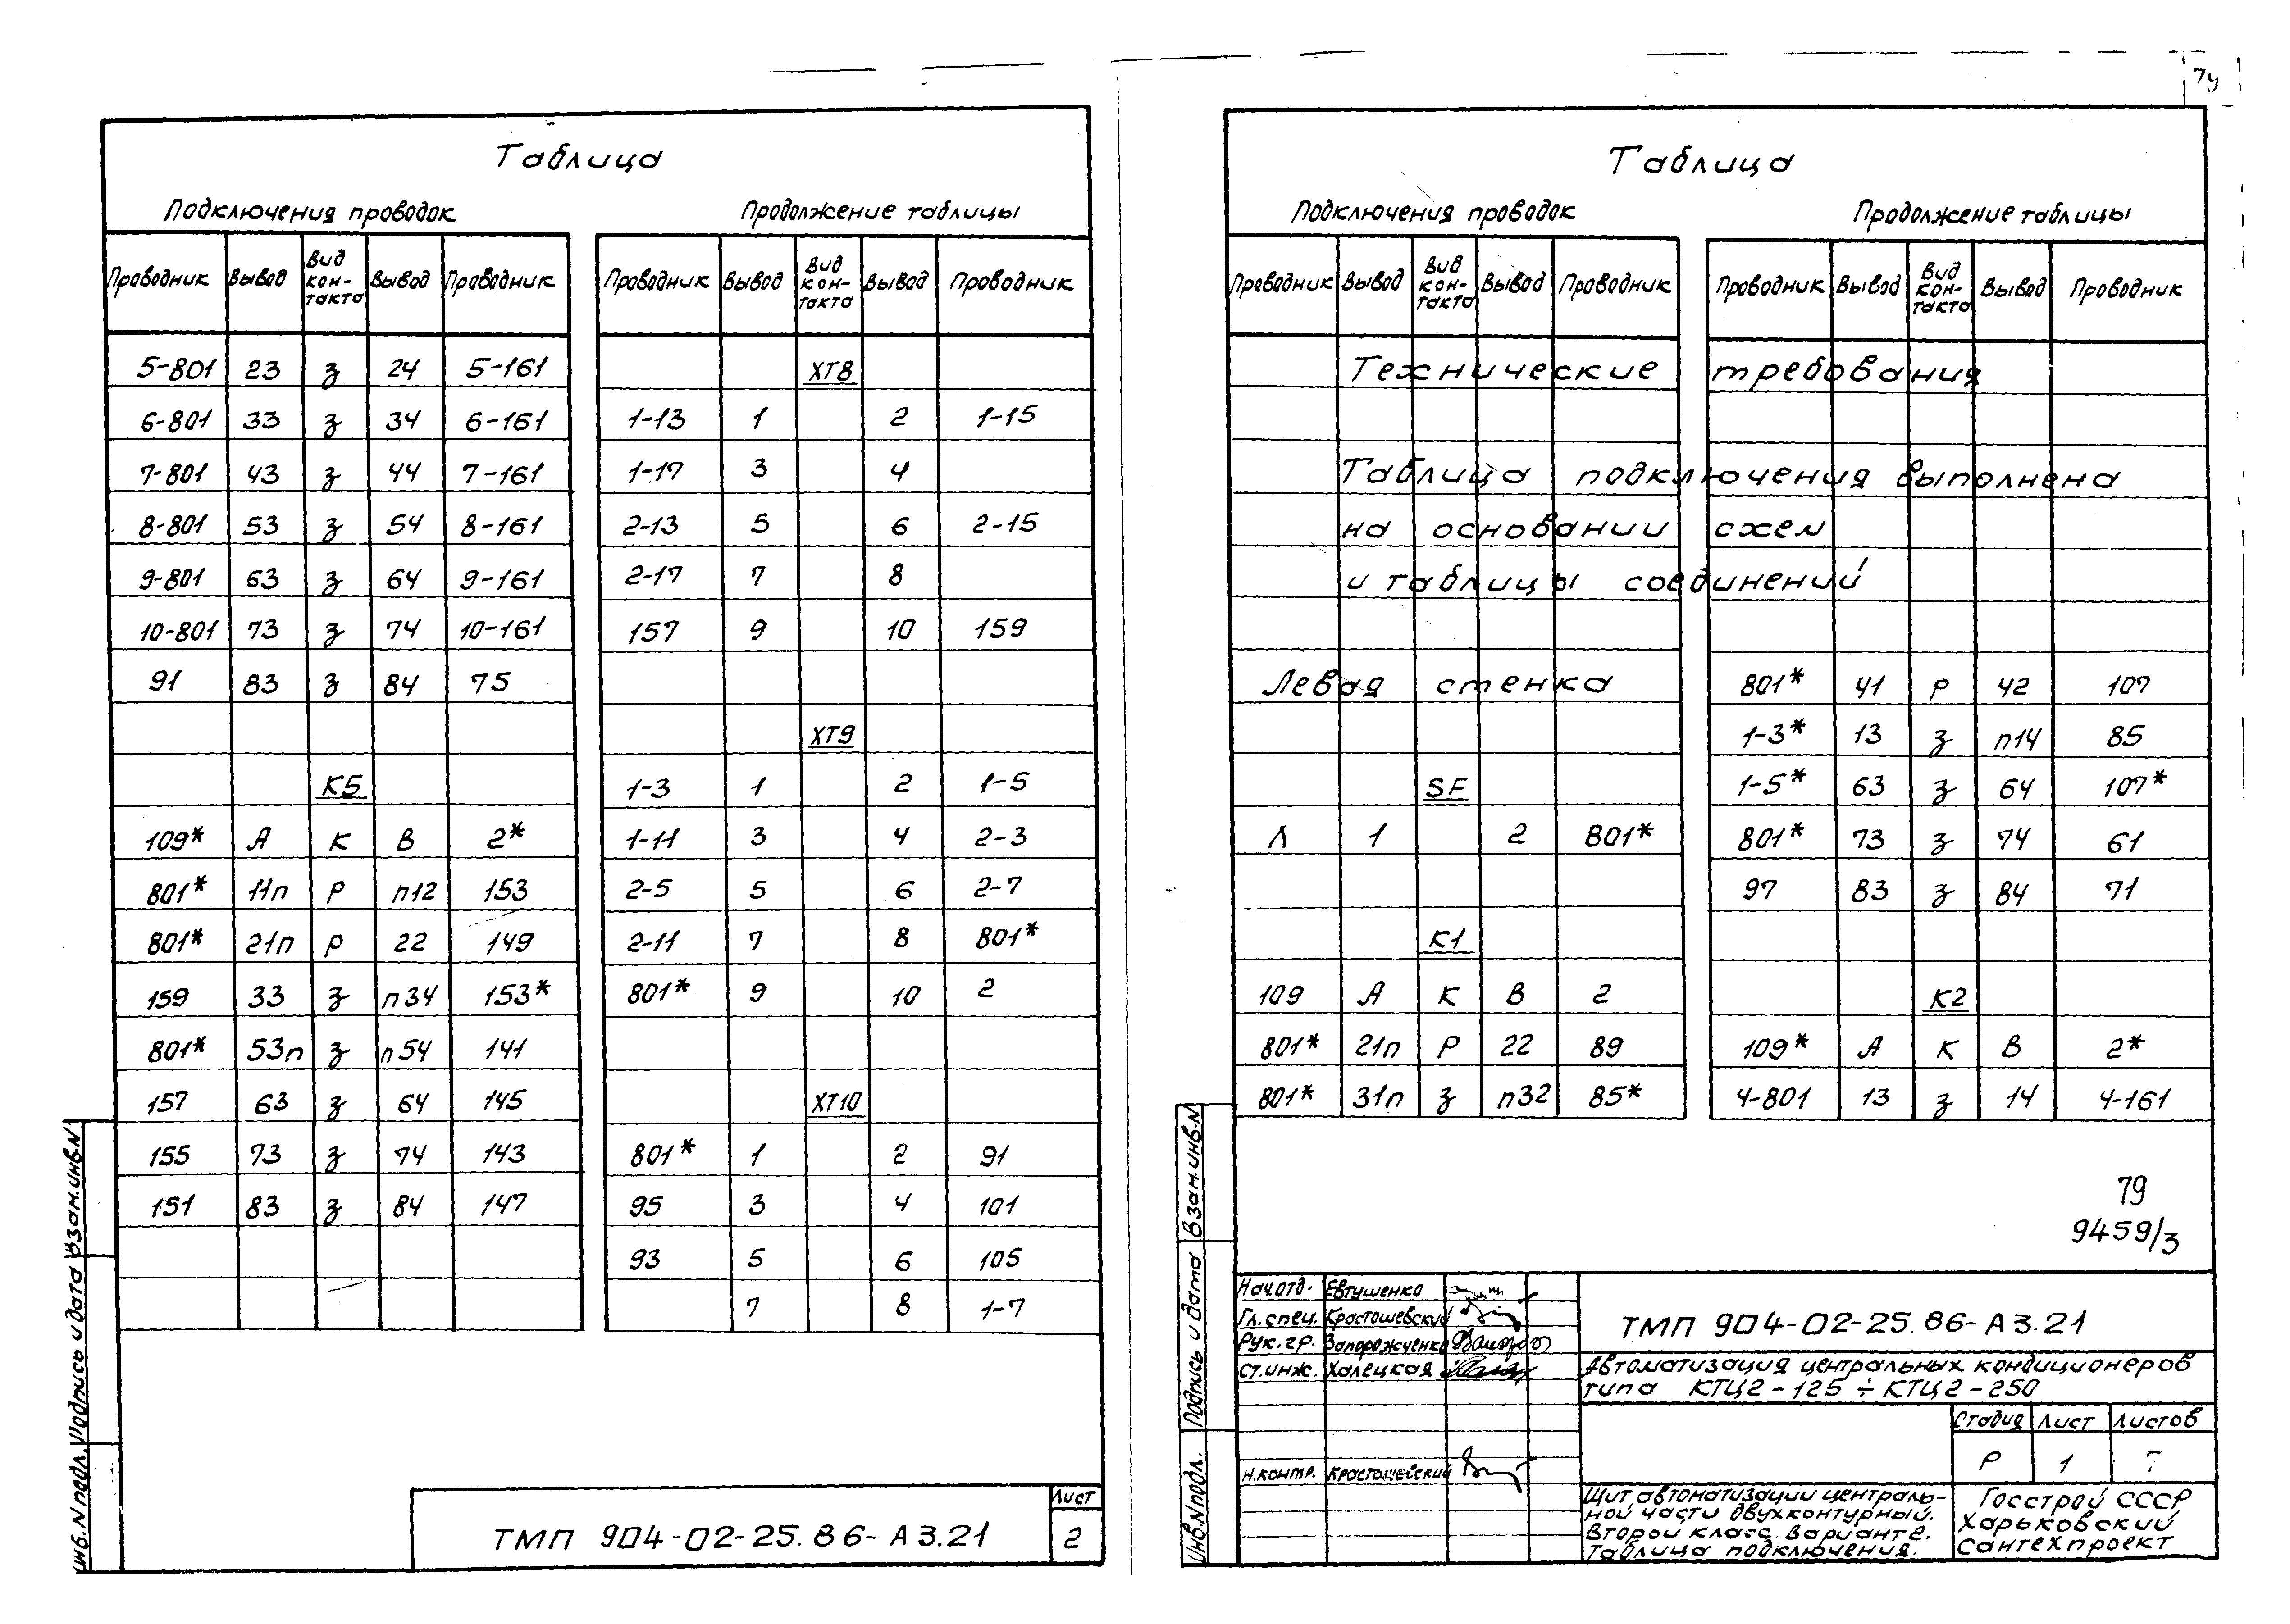 Таблица
Подключения проводок
Проводник Вывод Вид кон-такта Вывод Проводник
5-801 23 з 24 5-161
6-801 33 з 34 6-161
7-801 43 з 44 7-161
8-801 53 з 54 8-161
9-801 63 з 64 9-161
10-801 73 з 74 10-161
91 83 з 84 75
К5
109* А К В 2*
801* 11п Р п12 153
801* 21п Р 22 149
159 33 з п34 153*
801* 53п з п54 141
157 63 з 64 145
155 73 з 74 143
151 83 з 84 147
Продолжение таблицы
Проводник Вывод Вид кон-такта Вывод Проводник
ХТ8
1-13 1 2 1-15
1-17 3 4
2-13 5 6 2-15
2-17 7 8
157 9 10 159
ХТ9
1-3 1 2 1-5
1-11 3 4 2-3
2-5 5 6 2-7
2-11 7 8 801*
801* 9 10 2
ХТ10
801* 1 2 91
95 3 4 101
93 5 6 105
7 8 1-7
Инв.N подл. Подпись и дата Взам.инв.N
ТМП 904-02-25.86-А3.21
Лист
2
Таблица
Подключения проводок
Продолжение таблицы
Проводник Вывод Вид кон-такта Вывод Проводник
Проводник Вывод Вид кон-такта Вывод Проводник
Технические требования
Таблица подключения выполнена
на основании схем
и таблицы соединений
Левая стенка
SF
Л 1 2 801*
К1
109 А К В 2
801* 21п Р 22 89
801* 31п з п32 85*
801* 41 Р 42 107
1-3* 13 з п14 85
1-5* 63 з 64 107*
801* 73 з 74 61
97 83 з 84 71
К2
109* А К В 2*
4-801 13 з 14 4-161
79
9459/3
Инв.N подл. Подпись и дата Взам.инв.N
Нач.отд. Евтушенко
Гл.спец. Красташевский
Рук.гр. Запорожченко
Ст.инж. Халецкая
Н.контр. Красташевский
ТМП 904-02-25.86-А3.21
Автоматизация центральных кондиционеров
типа КТЦ2-125÷КТЦ2-250
Стадия Лист Листов
Р 1
Щит автоматизации централь-
ной части двухконтурный.
Второй класс. Вариант
Таблица подключения.
Госстрой СССР
Харьковский
Сантехпроект